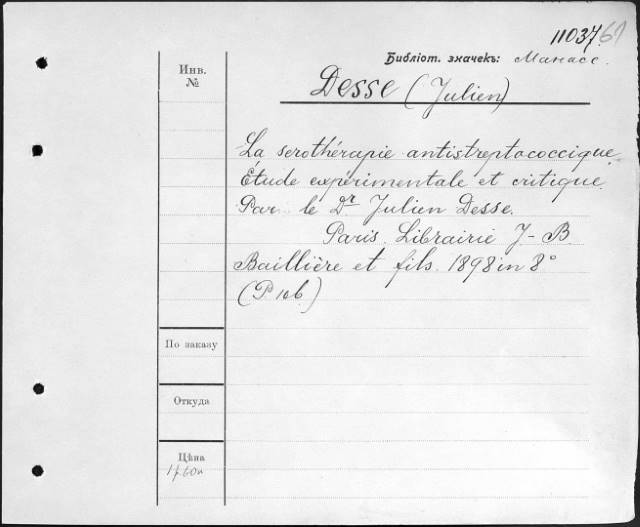 11037.61
Библіот. значекъ: Манасе.
Инв.
№
Desse (Julien)
La serothérapie antistreptococcique.
Étude expérimentale et critique.
Par le Dr Julien Desse.
Paris. Librairie J-B
Baillière et fils. 1898 in 8°
(P 106)
По заказу
Откуда
Цѣна